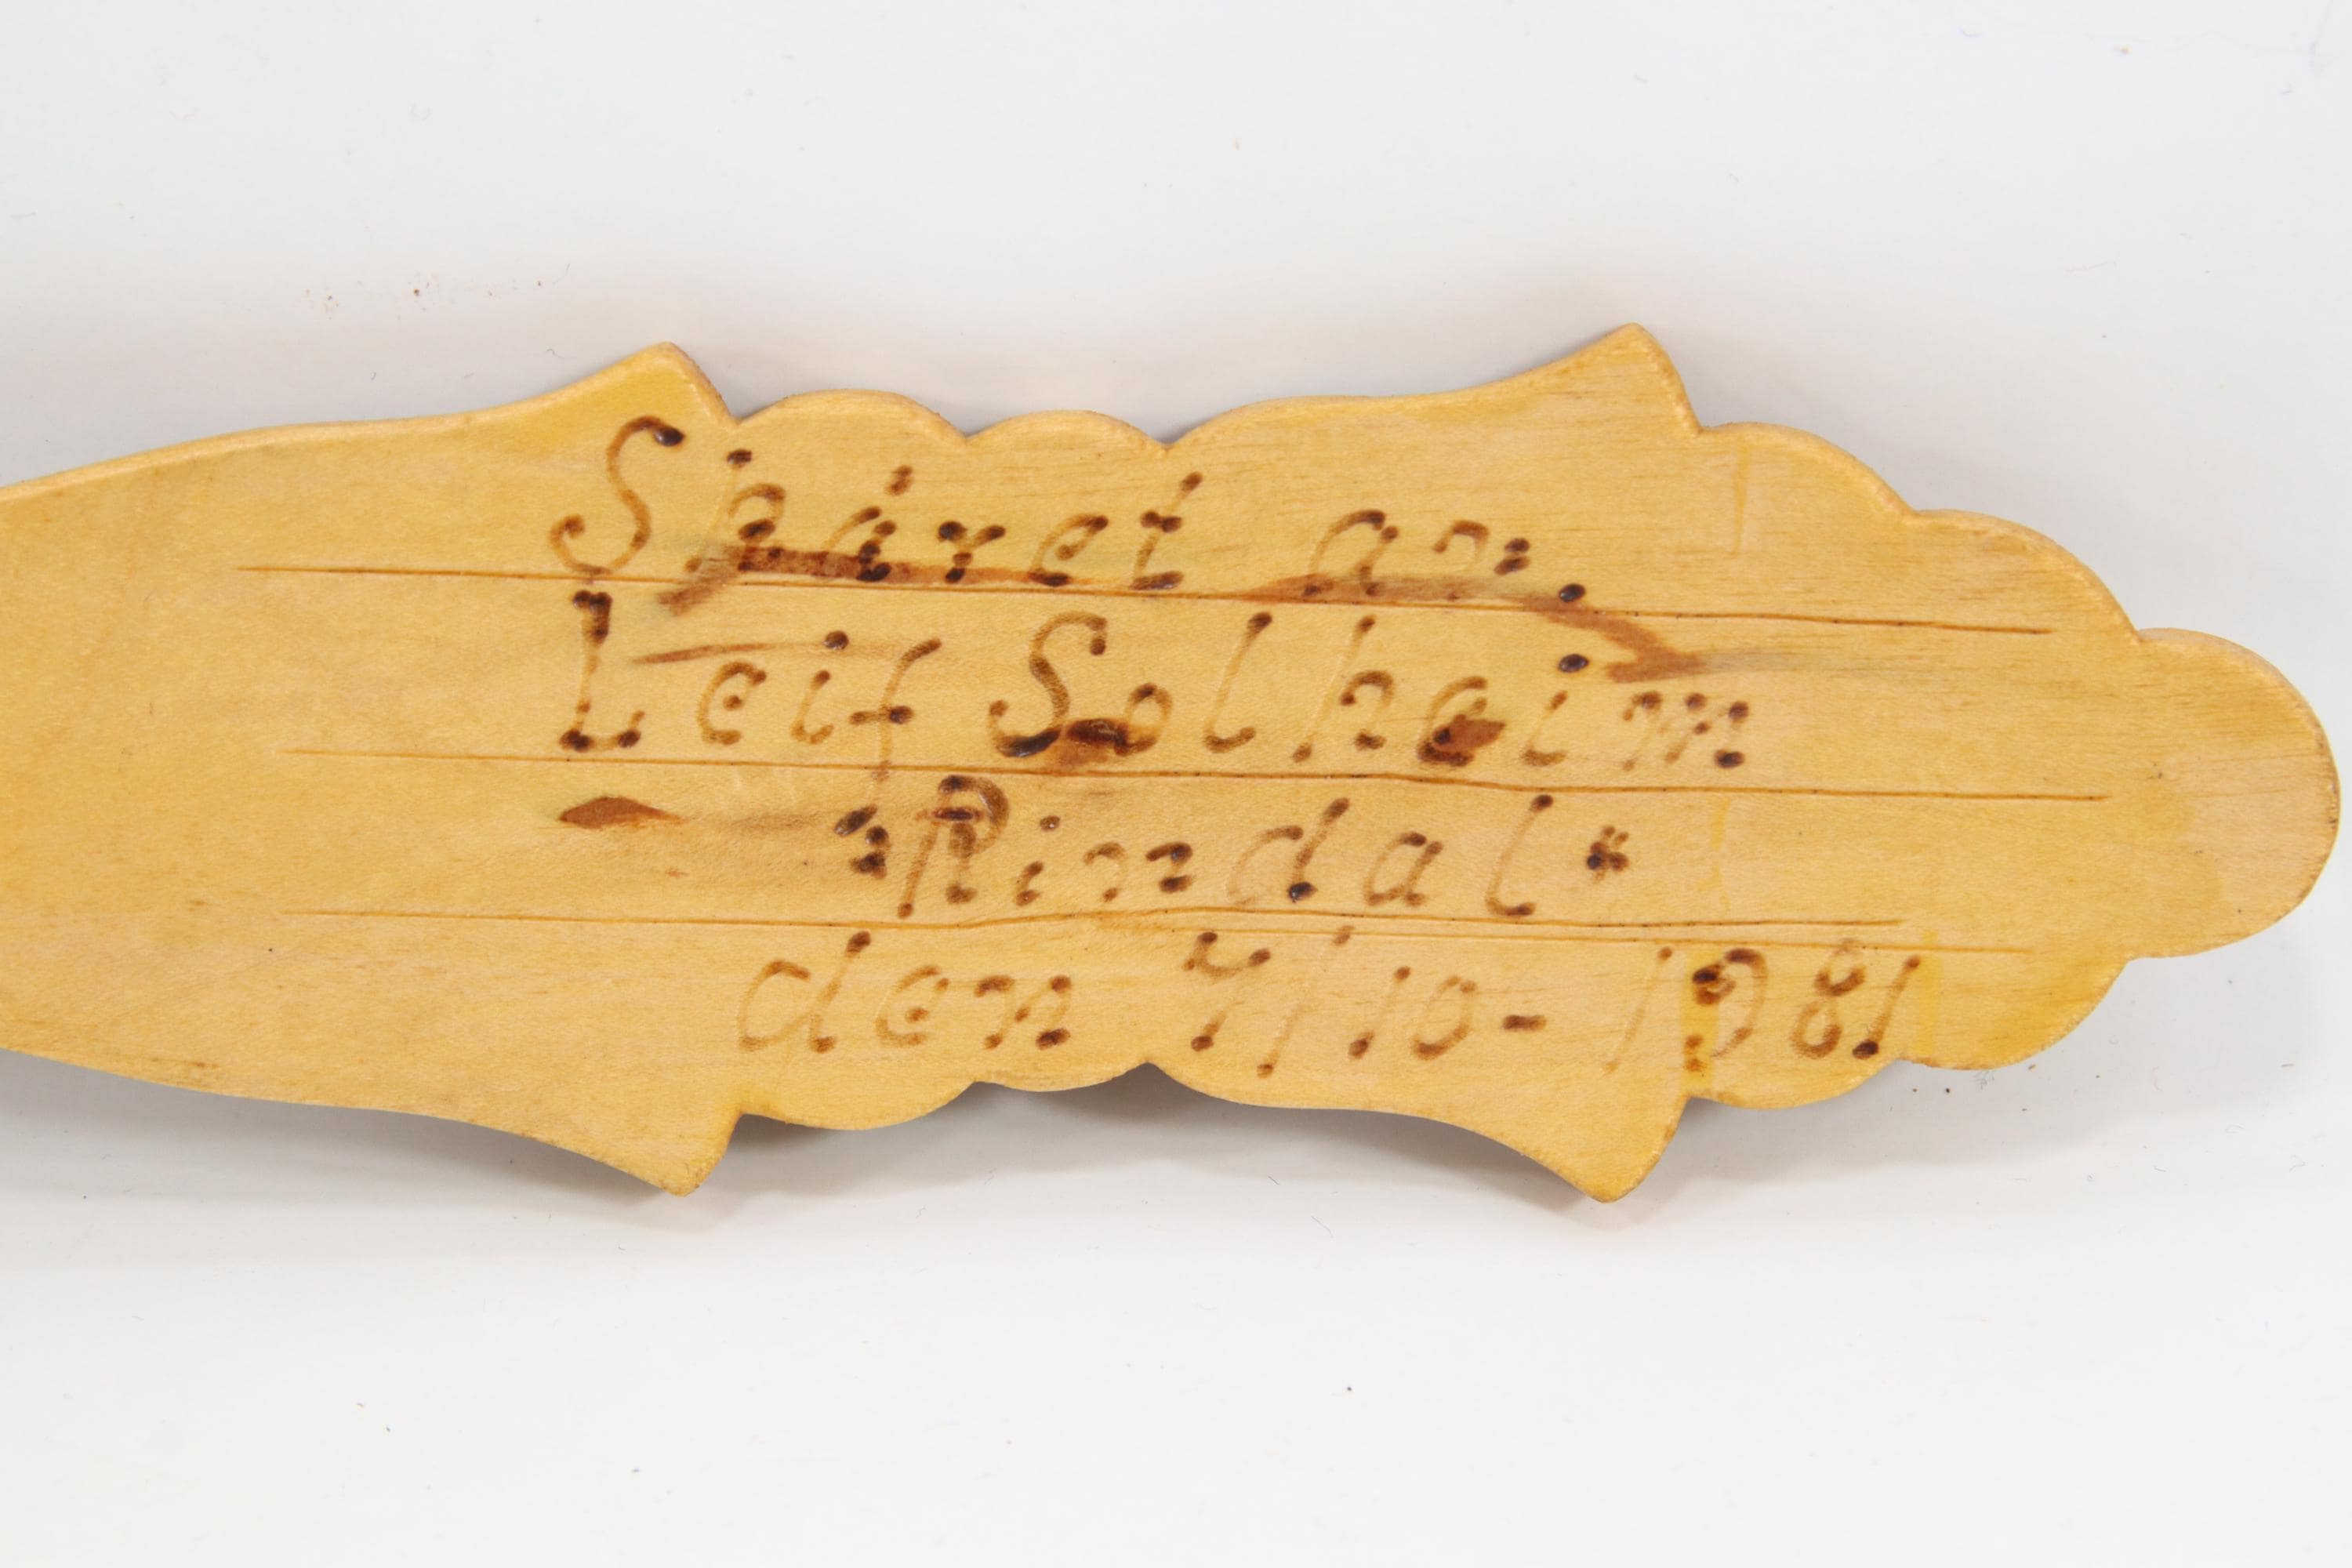 Skåret av.
Leif Solheim
"Rindal"
den 7/10-1981